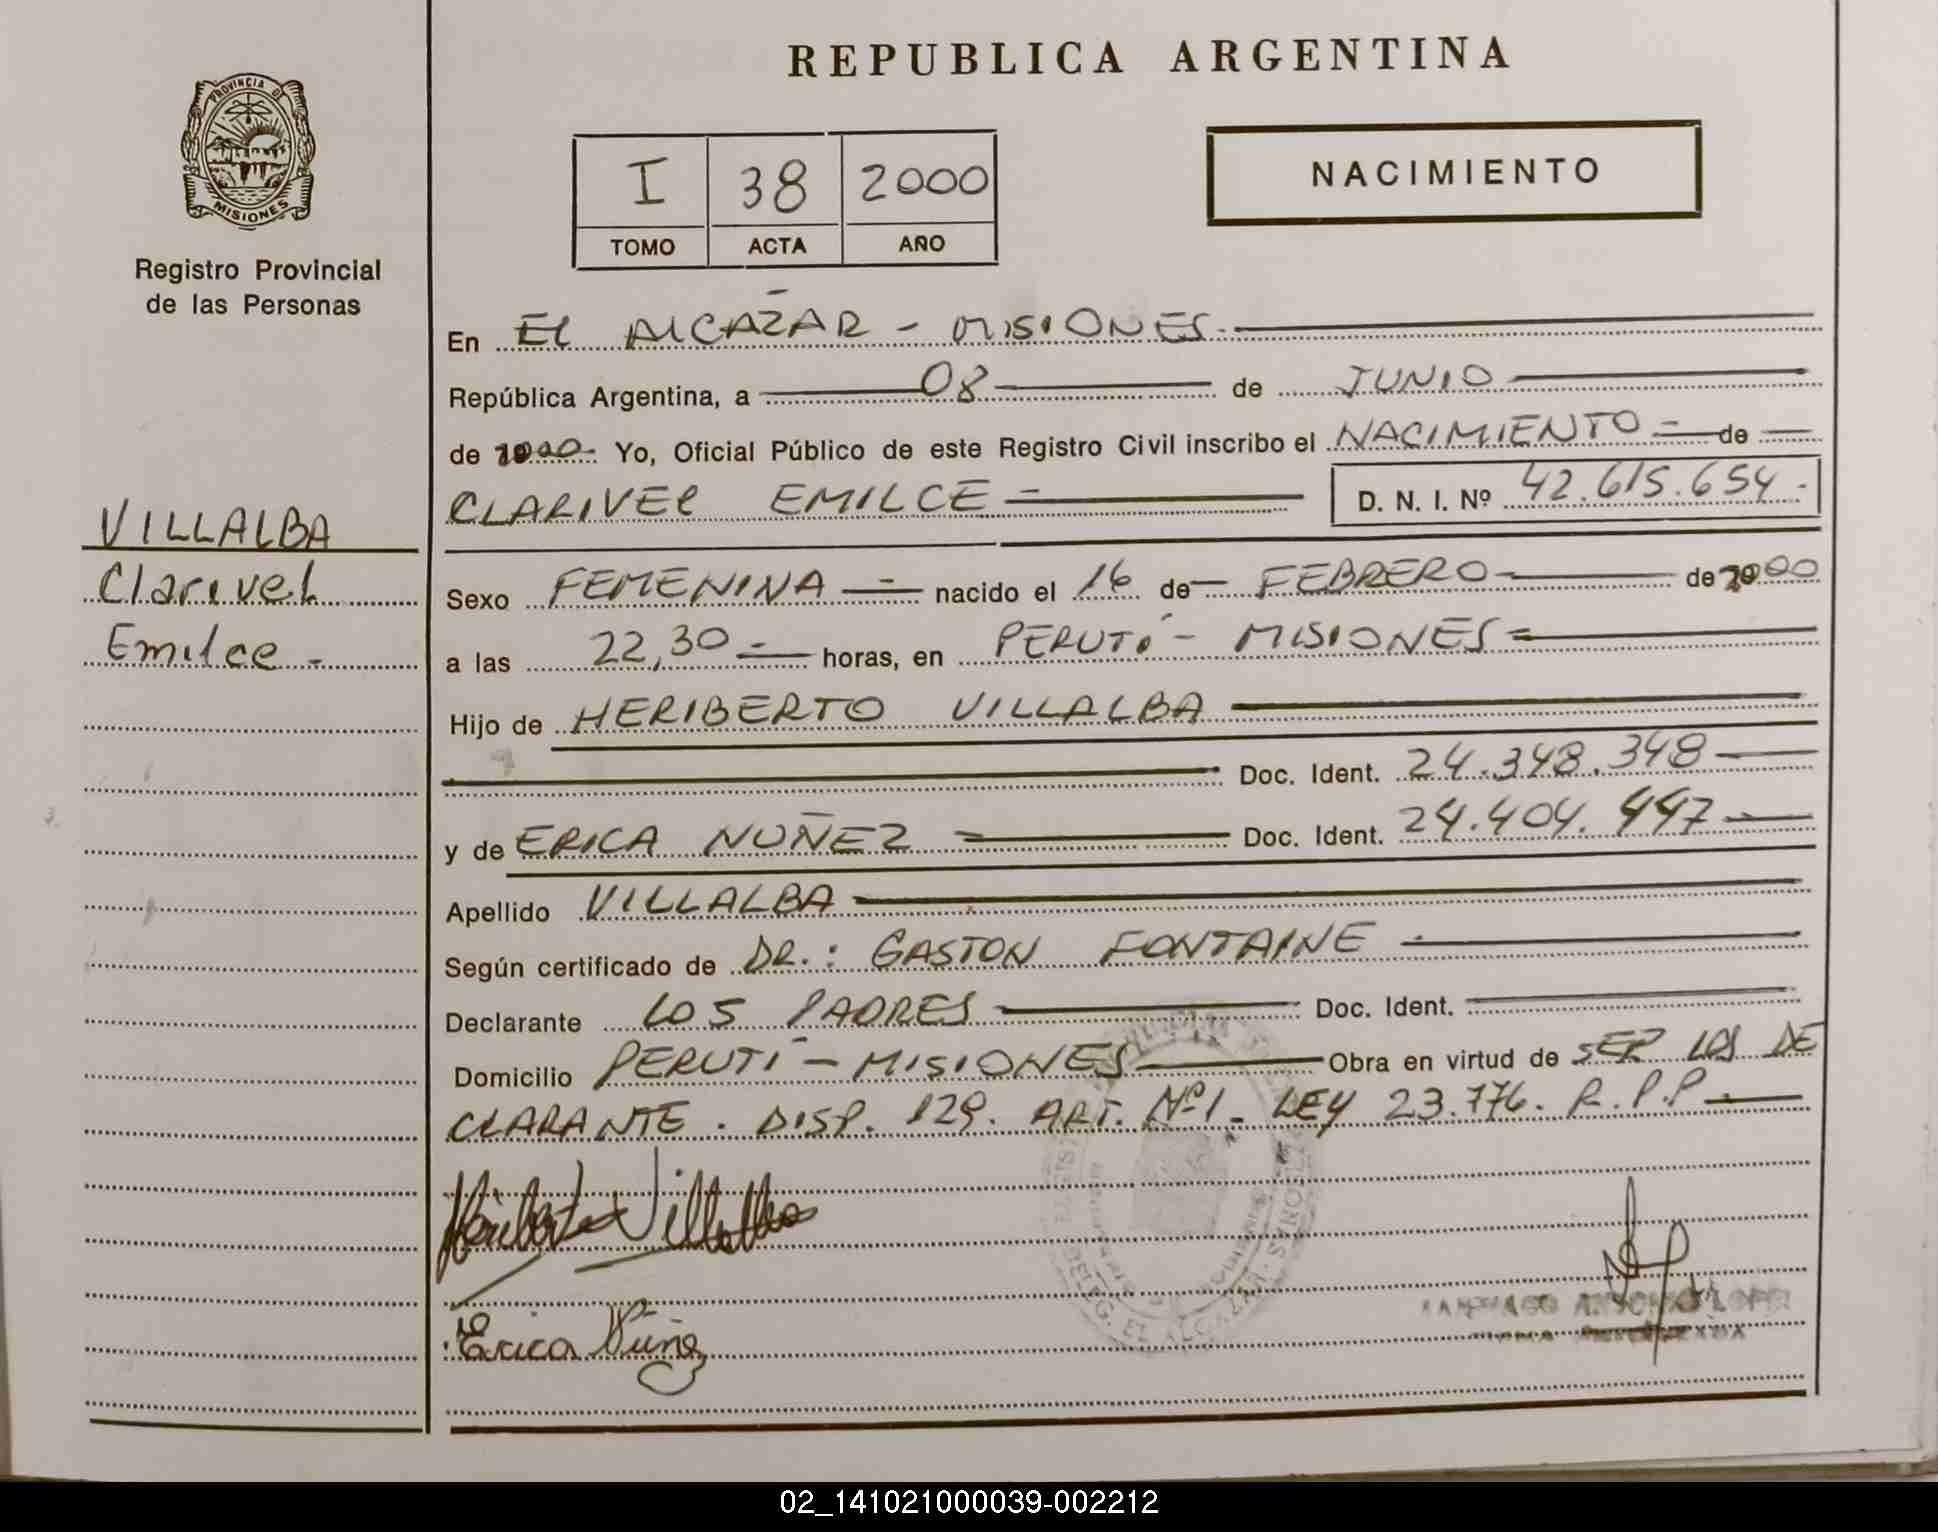 REPUBLICA ARGENTINA
PROVINCIA DE
MISIONES
Registro Provincial
de las Personas
I 38 2000
TOMO ACTA AÑO
NACIMIENTO
En EL ALCAZAR - MISIONES.
República Argentina, a 08 de JUNIO
de 2000- Yo, Oficial Público de este Registro Civil inscribo el NACIMIENTO = de
CLARIVEL EMILCE = D. N. I. Nº 42.615.654.-
VILLALBA
Clarivel
Emilce -
Sexo FEMENINA = nacido el 16 de FEBRERO de 2000
a las 22,30 = horas, en PERUTÍ - MISIONES =
Hijo de HERIBERTO VILLALBA
Doc. Ident. 24.348.348
y de ERICA NUÑEZ = Doc. Ident. 24.404.447
Apellido VILLALBA
Según certificado de DR.: GASTON FONTAINE
Declarante LOS PADRES Doc. Ident.
Domicilio PERUTÍ - MISIONES Obra en virtud de SER LOS DE
CLARANTE. DISP. 129. ART. Nº1. LEY 23.776. R.P.P
Heriberto Villalba
Erica Nuñez
DELEG. EL ALCAZAR - MISIONES
SANTIAGO ANTONIO LOPEZ
02_141021000039-002212